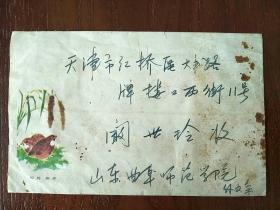 天津市红桥区大胡同
牌楼口西街11号
阚世玲收
山东曲阜师范学院